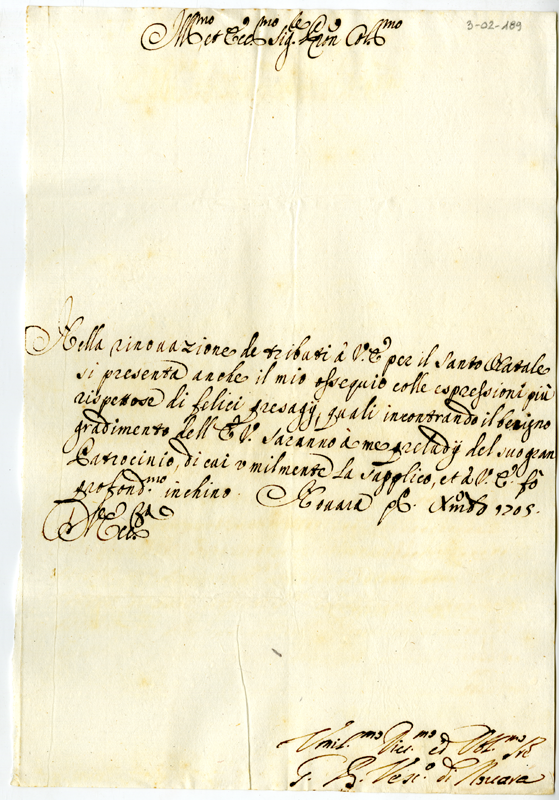 3-02-189
Ill.mo et Ecc.mo Sig.re Pron Col.mo
Nella rinouazione de tributi à V.E. per il Santo Natale
si presenta anche il mio ossequio colle espressioni più
rispettose di felici presagij, quali incontrando il benigno
gradimento dell'E.V. saranno à me preludij del suo gran
Patrocinio, di cui vmilmente La supplico, et à V.E. fo
profond.mo inchino. Nouara Xmbre 1705.
Umil.mo Diu.mo ed Obl.mo Sre
G. B. Vesc.o di Nouara